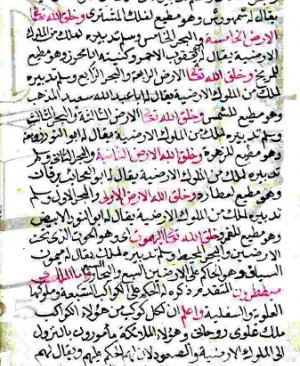 يقال له شمهورش وهو مطيع لملك المشتري وخلق الله تعالى
الارض الخامسة والبحر الخامس وسلم تدبيره لملك من الملوك
الارضية يقال له ابي يعقوب الاحمر وكنيته ابا محرز وهو مطيع
للمريخ وخلق الله تعالى الارض الرابعة والبحر الرابع وسلم تدبيره
لملك من الملوك الارضية يقال له ابا عبد الله سعيد المذهب
وهو مطيع للشمس وخلق الله تعالى الارض الثالثة والبحر الثالث
وسلم تدبيره لملك من الملوك الارضية يقال له ابو النور زوبعة
وهو مطيع للزهرة وخلق الله الارض الثانية والبحر الثاني وسلم
تدبيره لملك من الملوك الارضية يقال له ابو العجائب برقان
وهو مطيع لعطارد وخلق الله الارض الاولى والبحر الاول وسلم
تدبيره لملك من الملوك الارضية يقال له ابو النور الابيض
وهو مطيع للقمر وخلق الله تعالى البهموت وهو الحوت الذي تحت
الارضين والبحر المحيط وسلم تدبيره لملك يقال له ميمون
السياف وهو الحاكم على الارضين السبع والبحار
ميططرون المتقدم ذكره له الحكم على الكواكب السبعة وملوكها
العلوية والسفلية واعلم ان لكل كوكب من هؤلاء الكواكب
ملك علوي روحاني وهؤلاء الملائكة مأمورون بالنزول
الى الملوك الارضية والصعود لان لهم الحكم عليهم ويقال لهم